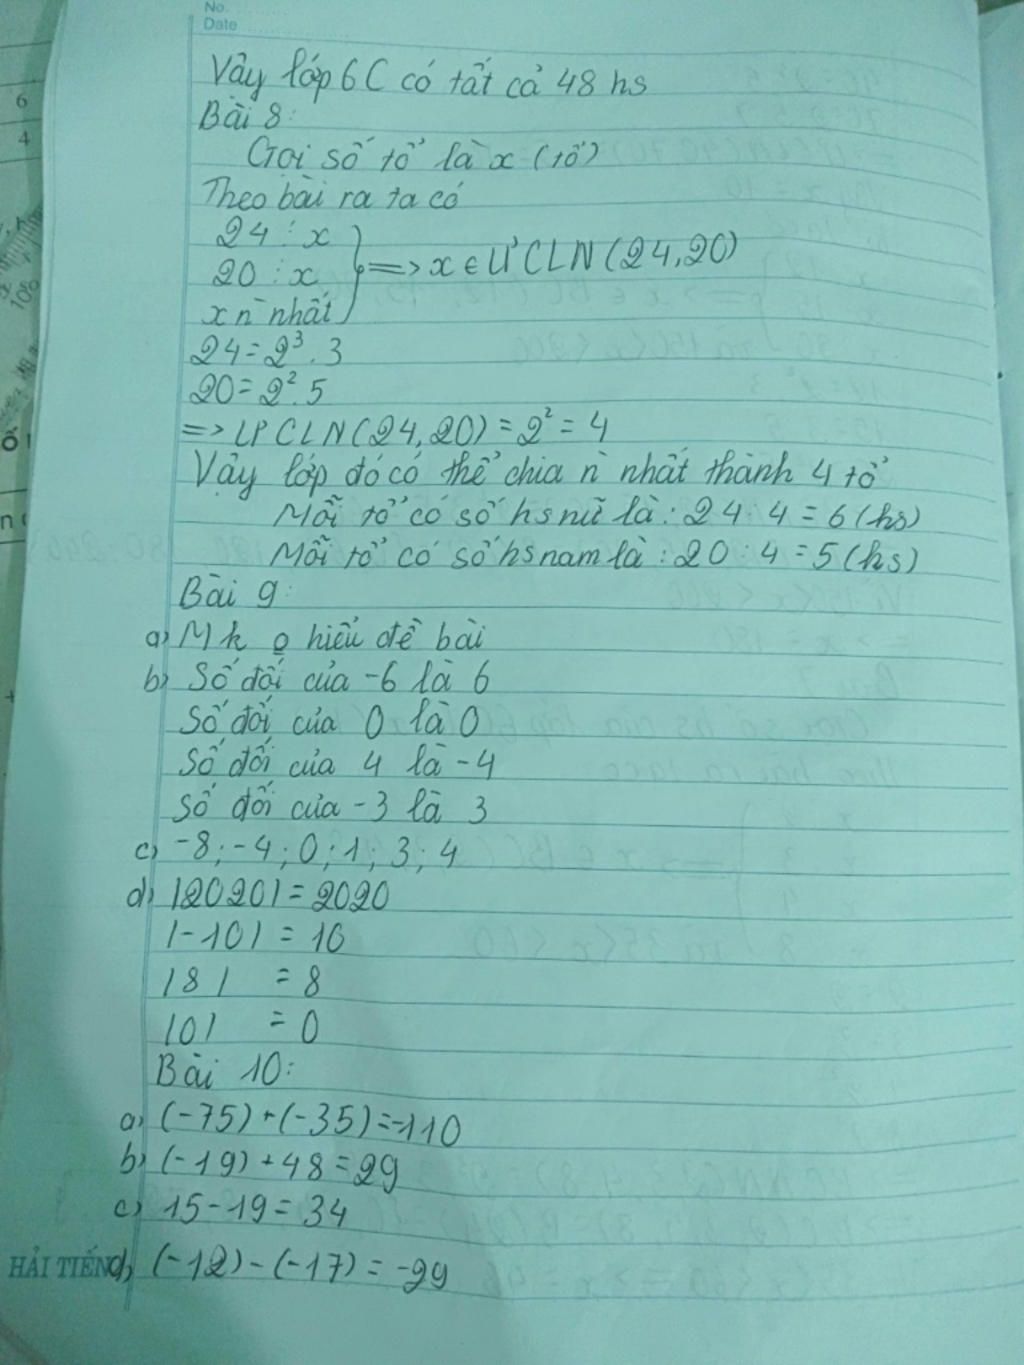 No.
Date
Vậy lớp 6C có tất cả 48 hs
Bài 8:
Gọi số tổ là x (tổ)
Theo bài ra ta có
24 ⋮ x
20 ⋮ x } => x ∈ ƯCLN(24,20)
x n` nhất
24 = 2³ . 3
20 = 2² . 5
=> ƯCLN(24,20) = 2² = 4
Vậy lớp đó có thể chia n` nhất thành 4 tổ
Mỗi tổ có số hs nữ là: 24 : 4 = 6 (hs)
Mỗi tổ có số hs nam là : 20 : 4 = 5 (hs)
Bài 9:
a) Mk o hiểu đề bài
b) Số đối của -6 là 6
Số đối của 0 là 0
Số đối của 4 là -4
Số đối của -3 là 3
c) -8 ; -4 ; 0 ; 1 ; 3 ; 4
d) |2020| = 2020
|-10| = 10
|8| = 8
|0| = 0
Bài 10:
a) (-75) + (-35) = -110
b) (-19) + 48 = 29
c) 15 - 19 = 34
HẢI TIẾN d) (-12) - (-17) = -29